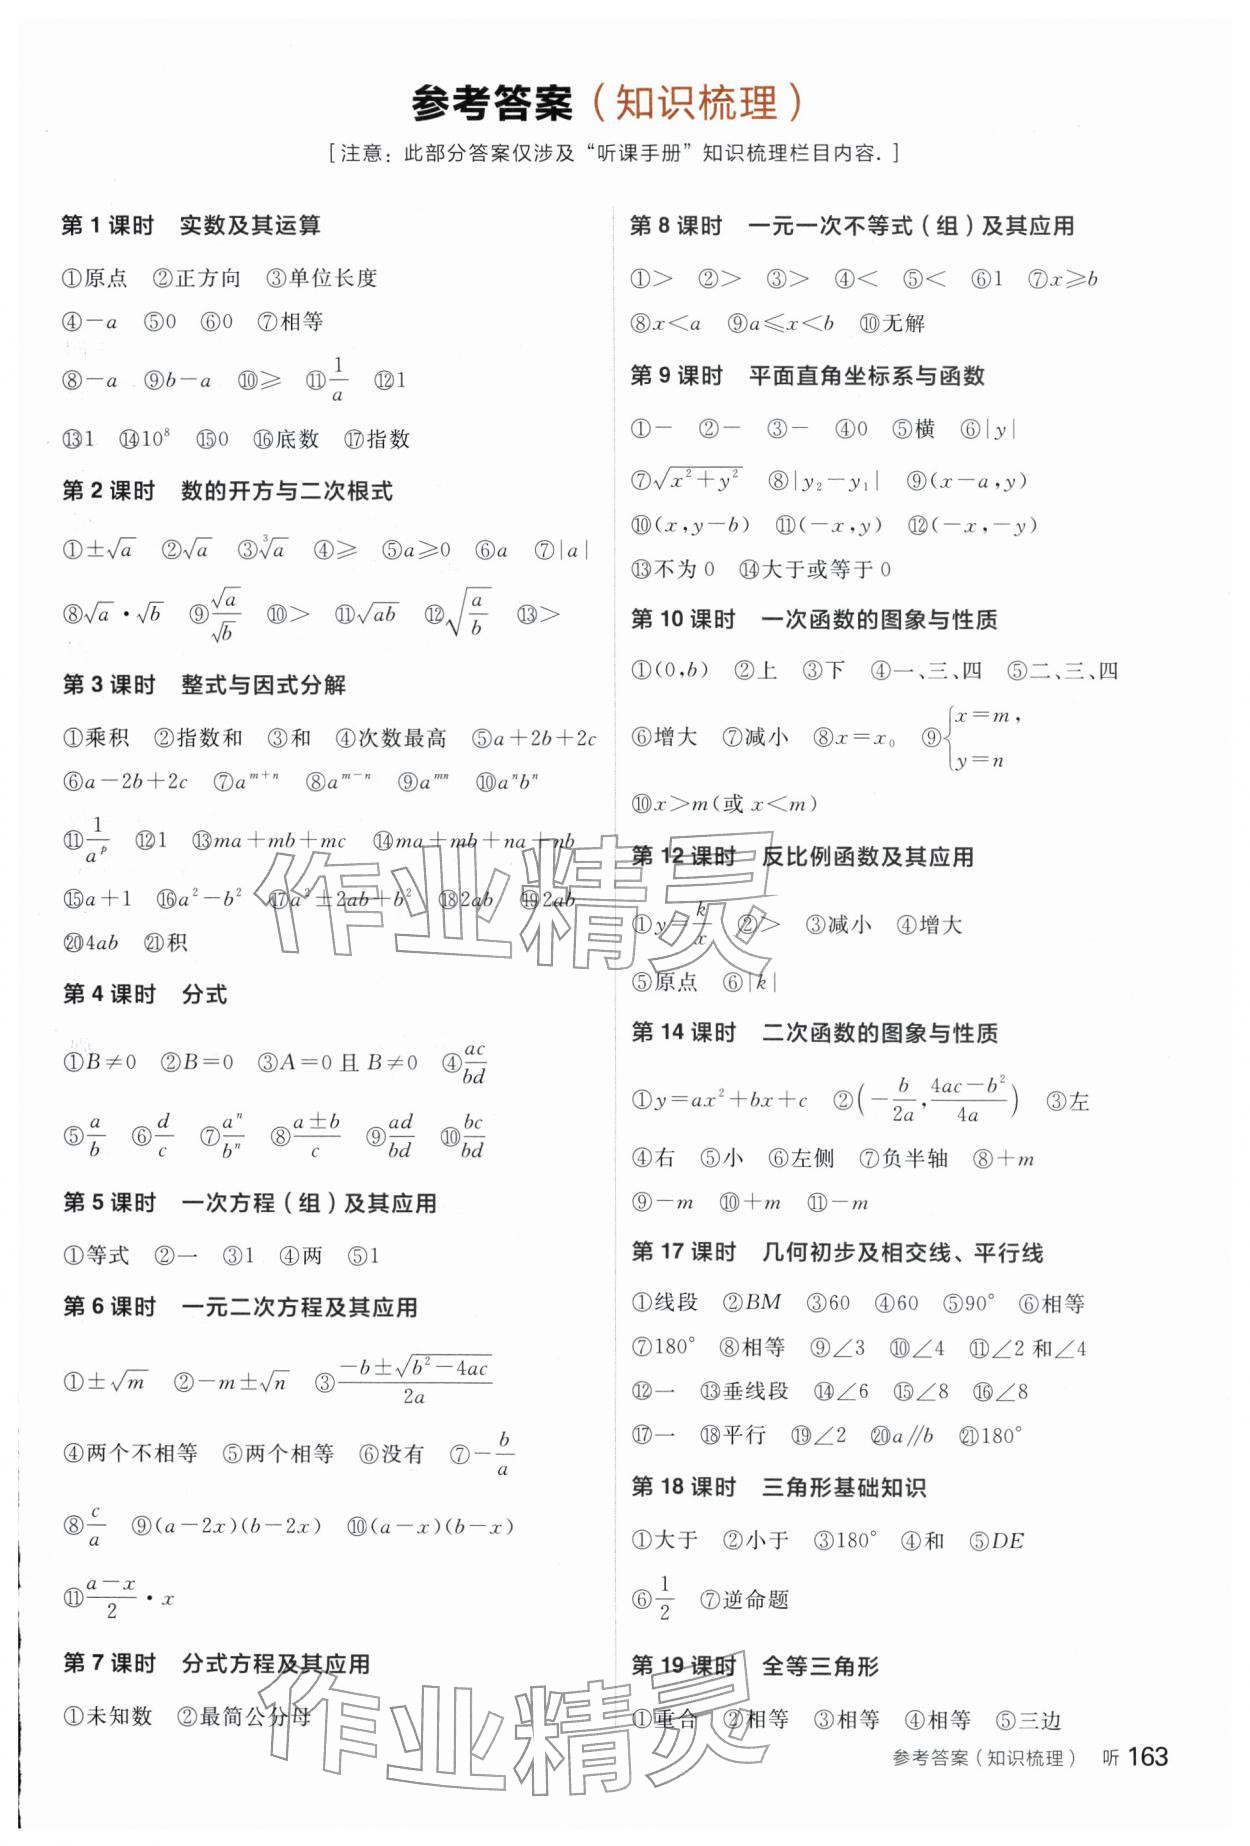 参考答案（知识梳理）
[注意：此部分答案仅涉及“听课手册”知识梳理栏目内容.]
第 1 课时　实数及其运算
①原点　②正方向　③单位长度
④－a　⑤0　⑥0　⑦相等
⑧－a　⑨b－a　⑩≥　⑪1/a　⑫1
⑬1　⑭10⁸　⑮0　⑯底数　⑰指数
第 2 课时　数的开方与二次根式
①±√a　②√a　③∛a　④≥　⑤a≥0　⑥a　⑦|a|
⑧√a·√b　⑨√a/√b　⑩＞　⑪√(ab)　⑫√(a/b)　⑬＞
第 3 课时　整式与因式分解
①乘积　②指数和　③和　④次数最高　⑤a＋2b＋2c
⑥a－2b＋2c　⑦a^(m＋n)　⑧a^(m－n)　⑨a^(mn)　⑩aⁿbⁿ
⑪1/a^p　⑫1　⑬ma＋mb＋mc　⑭ma＋mb＋na＋nb
⑮a＋1　⑯a²－b²　⑰a²±2ab＋b²　⑱2ab　⑲2ab
⑳4ab　㉑积
第 4 课时　分式
①B≠0　②B＝0　③A＝0 且 B≠0　④ac/bd
⑤a/b　⑥d/c　⑦aⁿ/bⁿ　⑧(a±b)/c　⑨ad/bd　⑩bc/bd
第 5 课时　一次方程（组）及其应用
①等式　②一　③1　④两　⑤1
第 6 课时　一元二次方程及其应用
①±√m　②－m±√n　③(－b±√(b²－4ac))/2a
④两个不相等　⑤两个相等　⑥没有　⑦－b/a
⑧c/a　⑨(a－2x)(b－2x)　⑩(a－x)(b－x)
⑪(a－x)/2·x
第 7 课时　分式方程及其应用
①未知数　②最简公分母
第 8 课时　一元一次不等式（组）及其应用
①＞　②＞　③＞　④＜　⑤＜　⑥1　⑦x≥b
⑧x＜a　⑨a≤x＜b　⑩无解
第 9 课时　平面直角坐标系与函数
①－　②－　③－　④0　⑤横　⑥|y|
⑦√(x²＋y²)　⑧|y₂－y₁|　⑨(x－a,y)
⑩(x,y－b)　⑪(－x,y)　⑫(－x,－y)
⑬不为 0　⑭大于或等于 0
第 10 课时　一次函数的图象与性质
①(0,b)　②上　③下　④一、三、四　⑤二、三、四
⑥增大　⑦减小　⑧x＝x₀　⑨{x＝m, y＝n
⑩x＞m(或 x＜m)
第 12 课时　反比例函数及其应用
①y＝k/x　②＞　③减小　④增大
⑤原点　⑥|k|
第 14 课时　二次函数的图象与性质
①y＝ax²＋bx＋c　②(－b/2a, (4ac－b²)/4a)　③左
④右　⑤小　⑥左侧　⑦负半轴　⑧＋m
⑨－m　⑩＋m　⑪－m
第 17 课时　几何初步及相交线、平行线
①线段　②BM　③60　④60　⑤90°　⑥相等
⑦180°　⑧相等　⑨∠3　⑩∠4　⑪∠2 和∠4
⑫一　⑬垂线段　⑭∠6　⑮∠8　⑯∠8
⑰一　⑱平行　⑲∠2　⑳a∥b　㉑180°
第 18 课时　三角形基础知识
①大于　②小于　③180°　④和　⑤DE
⑥1/2　⑦逆命题
第 19 课时　全等三角形
①重合　②相等　③相等　④相等　⑤三边
参考答案（知识梳理）　听 163
作业精灵
作业精灵